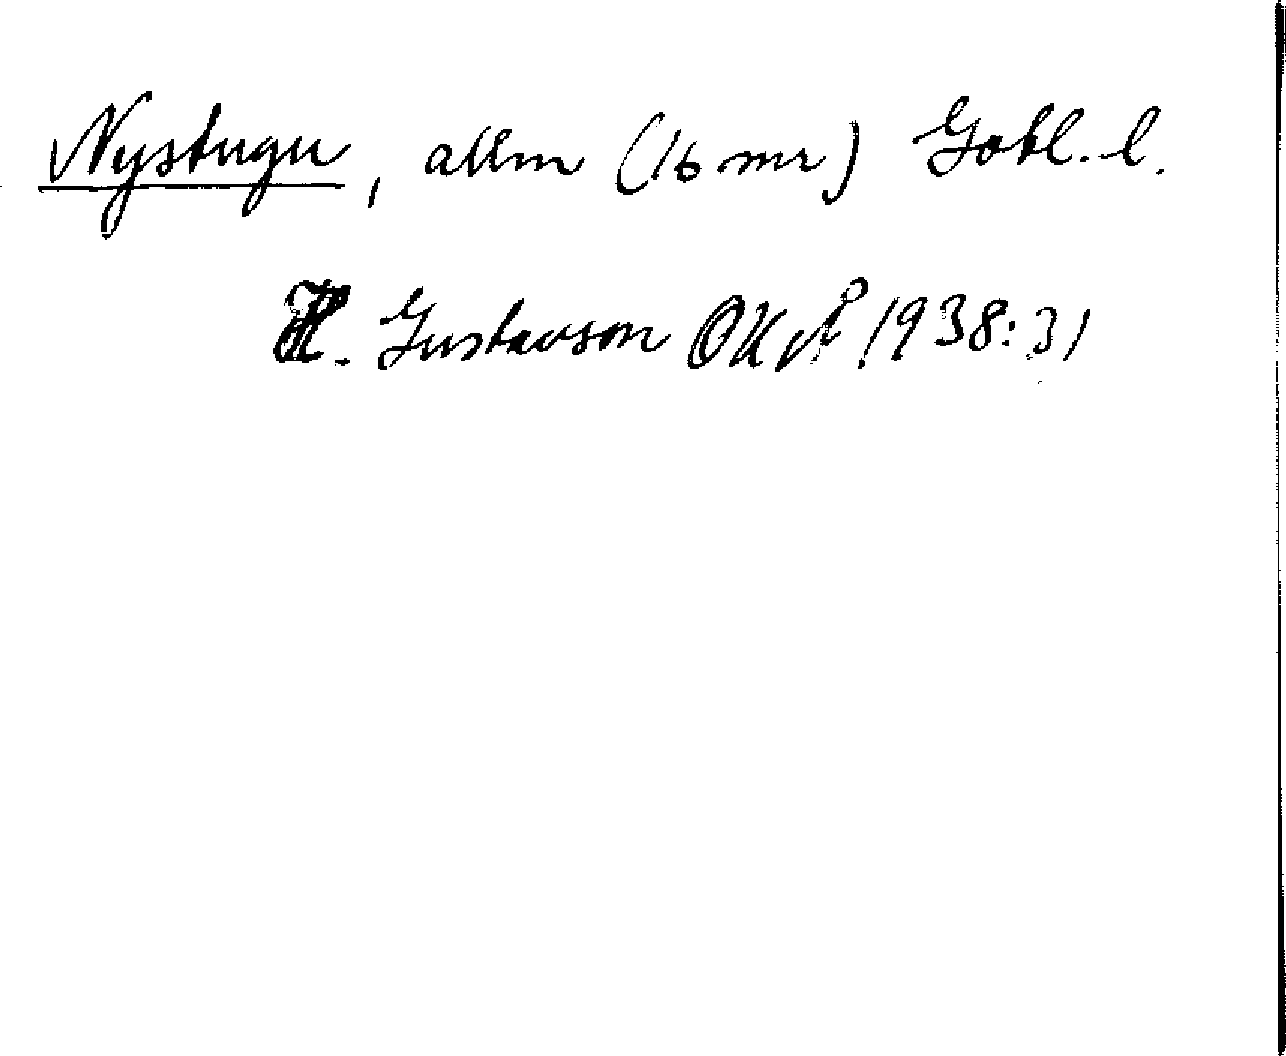 Nystugu, allm (16 nnr) Gotl. l.
H. Gustavson OUÅ 1938:31